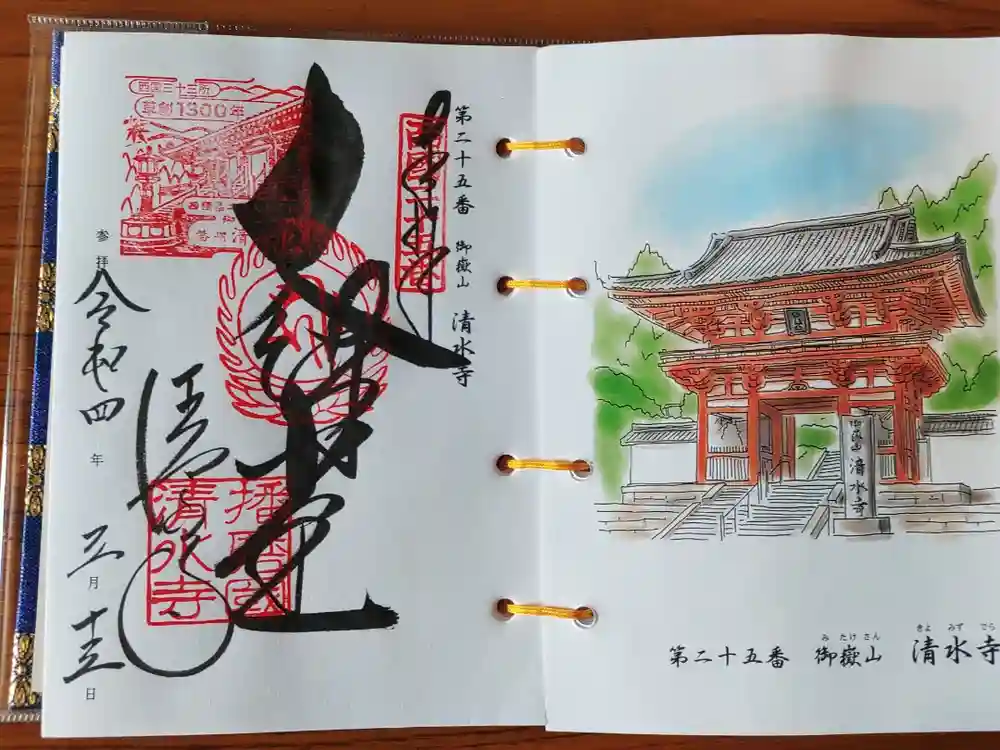 第二十五番 御嶽山 清水寺
奉拝
西国二十五番
大講堂
西国三十三所
草創1300年
清水寺
播磨国
清水寺
参拝 令和四年 三月 日
御嶽山 清水寺
第二十五番 御嶽山 清水寺
みたけさん きよみずでら